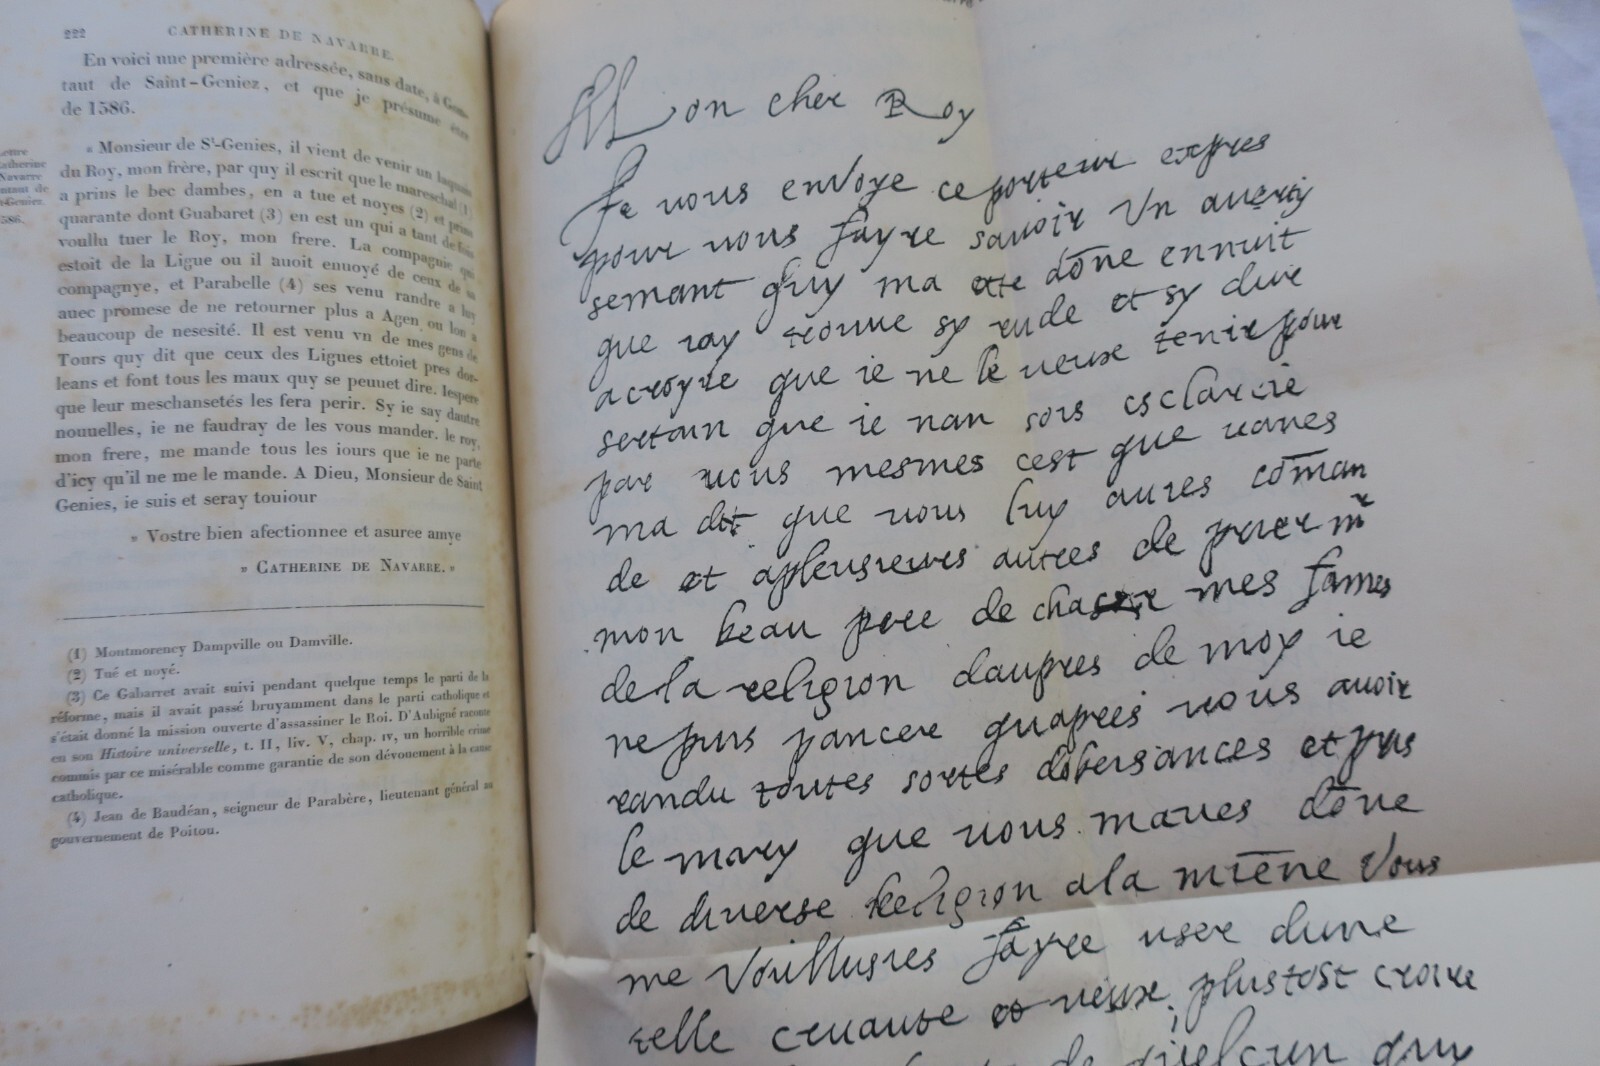 222 CATHERINE DE NAVARRE.
En voici une première adressée, sans date, à Gon-
taut de Saint-Geniez, et que je présume être
de 1586.
« Monsieur de St-Genies, il vient de venir un laquais
du Roy, mon frère, par quy il escrit que le mareschal (1)
a prins le bec dambes, en a tue et noyes (2) et prins
quarante dont Guabaret (3) en est un qui a tant de fois
voullu tuer le Roy, mon frere. La compagnie qui
estoit de la Ligue ou il auoit enuoyé de ceux de sa
compagnye, et Parabelle (4) ses venu randre a luy
auec promese de ne retourner plus a Agen ou lon a
beaucoup de nesesité. Il est venu vn de mes gens de
Tours quy dit que ceux des Ligues ettoiet pres dor-
leans et font tous les maux quy se peuuet dire. Iespere
que leur meschansetés les fera perir. Sy ie say dautre
nouuelles, ie ne faudray de les vous mander. le roy,
mon frere, me mande tous les iours que ie ne parte
d'icy qu'il ne me le mande. A Dieu, Monsieur de Saint
Genies, ie suis et seray touiour
» Vostre bien afectionnee et asuree amye
» CATHERINE DE NAVARRE. »
(1) Montmorency Dampville ou Damville.
(2) Tué et noyé.
(3) Ce Gabarret avait suivi pendant quelque temps le parti de la
réforme, mais il avait passé bruyamment dans le parti catholique et
s'était donné la mission ouverte d'assassiner le Roi. D'Aubigné raconte
en son Histoire universelle, t. II, liv. V, chap. IV, un horrible crime
commis par ce misérable comme garantie de son dévouement à la cause
catholique.
(4) Jean de Baudéan, seigneur de Parabère, lieutenant général au
gouvernement de Poitou.
Lettre
Catherine
Navarre
de
Geniez.
586.
Mon cher Roy
Je vous envoye ce porteur expres
pour vous fayre savoir Vn auerty
semant quy ma ete dōne ennuit
que iay trouue sy rude et sy dure
a croyre que ie ne le veuxe tenir pour
sertain que ie nan sois esclarcie
par vous mesmes cest que vanes
ma dit que vous luy aures cōman
de et aplusieurs autres de prier mr
mon beau pere de chaser mes fames
de la religion daupres de moy ie
ne puis pancer quapres vous auoir
randu toutes sortes dobeisances et pris
le mary que vous maues dōne
de diverse Religion a la miēne Vous
me Voulusies fayre user dune
telle cruaute et veux plustost croire
de quelcun quy